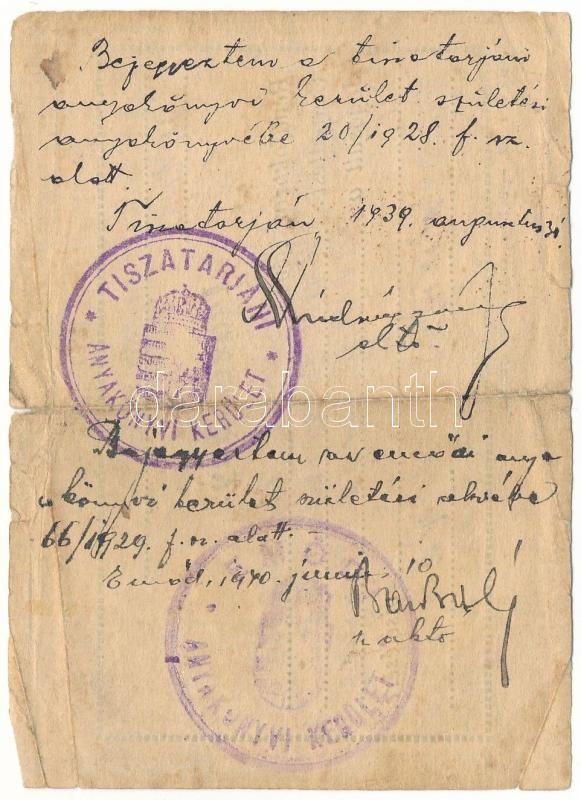 Bejegyeztem a tiszatarjáni
anyakönyvi kerület születési
anyakönyvébe 20/1928. f. sz.
alatt.
Tiszatarján 1939. augusztus
* TISZATARJÁNI *
ANYAKÖNYVI KERÜLET
darabanth
Bejegyeztem az emődi anya
könyvi kerület születési akvébe
66/1929. f. sz. alatt.
Emőd, 1940. juni. 10
ANYAKÖNYVI KERÜLET